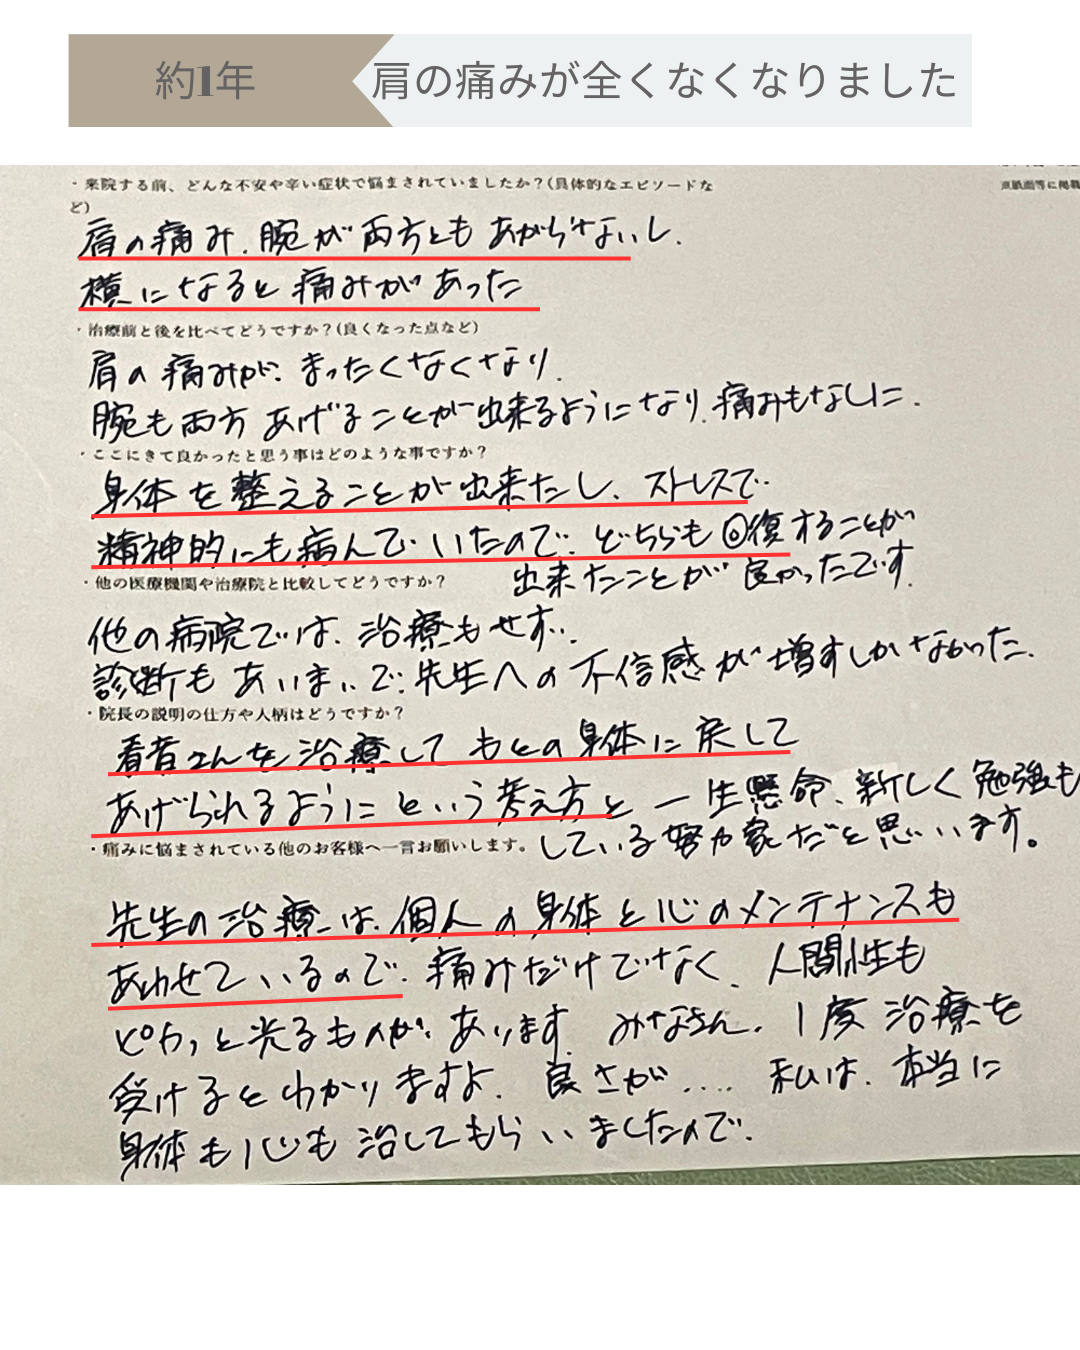 約1年
肩の痛みが全くなくなりました
・来院する前、どんな不安や辛い症状で悩まされていましたか？(具体的なエピソードな
ど)
※紙面等に掲載
肩の痛み、腕が両方ともあがらないし、
横になると痛みがあった
・治療前と後を比べてどうですか？(良くなった点など)
肩の痛みが、まったくなくなり、
腕も両方あげることが出来るようになり、痛みもなしに、
・ここにきて良かったと思う事はどのような事ですか？
身体を整えることが出来たし、ストレスで
精神的にも病んでいたので、どちらも回復することが
出来たことが良かったです。
・他の医療機関や治療院と比較してどうですか？
他の病院では、治療もせず、
診断もあいまいで、先生への不信感が増すしかなかった、
・院長の説明の仕方や人柄はどうですか？
看者さんを治療してもとの身体に戻して
あげられるようにという考え方と一生懸命、新しく勉強も
している努力家だと思います。
・痛みに悩まされている他のお客様へ一言お願いします。
先生の治療は、個人の身体と心のメンテナンスも
あわせているので、痛みだけでなく、人間性も
ピカッと光るものがあります。みなさん、1度治療を
受けるとわかりますよ、良さが....私は、本当に
身体も心も治してもらいましたので、